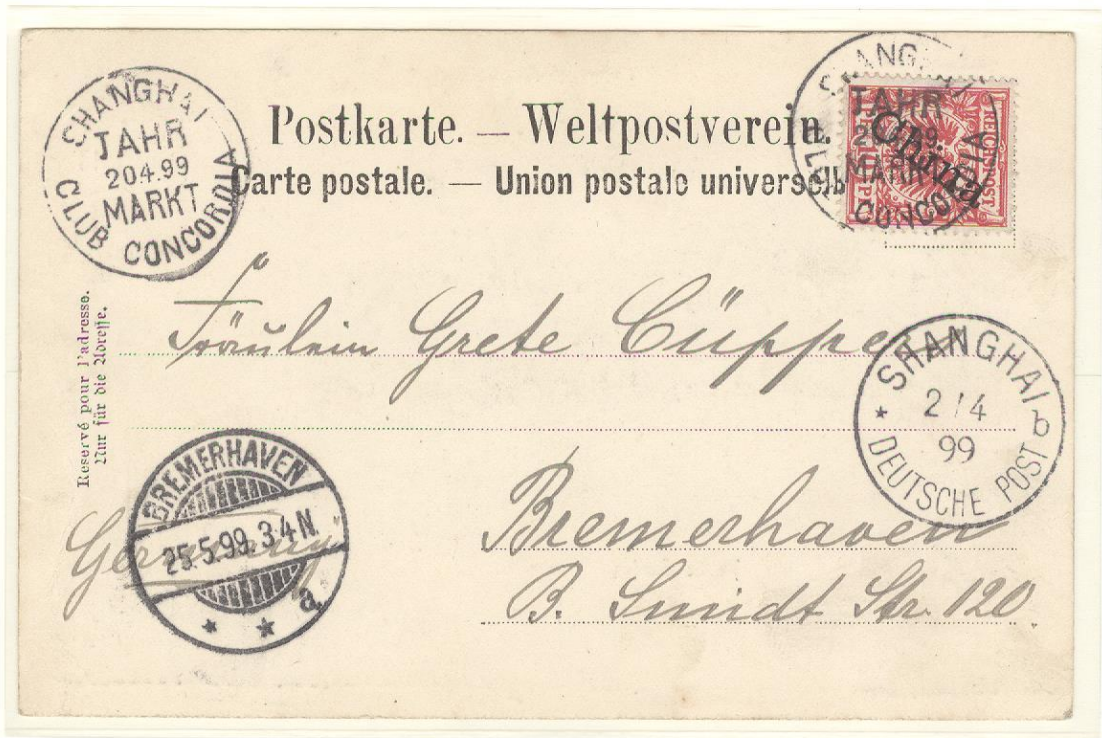 SHANGHAI
JAHR
20.4.99
MARKT
CLUB CONCORDIA
Postkarte. — Weltpostverein.
Carte postale. — Union postale universelle
SHANGHAI
JAHR
20.4.99.
MARKT
CLUB CONCORDIA
REICHSPOST
China
Reservé pour l'adresse.
Nur für die Adresse.
Fräulein Grete Cüppers
SHANGHAI
2/4
99
b
* DEUTSCHE POST
Bremerhaven
B. Smidt Str. 120
Germany
BREMERHAVEN
25.5.99. 3-4N.
* * a.